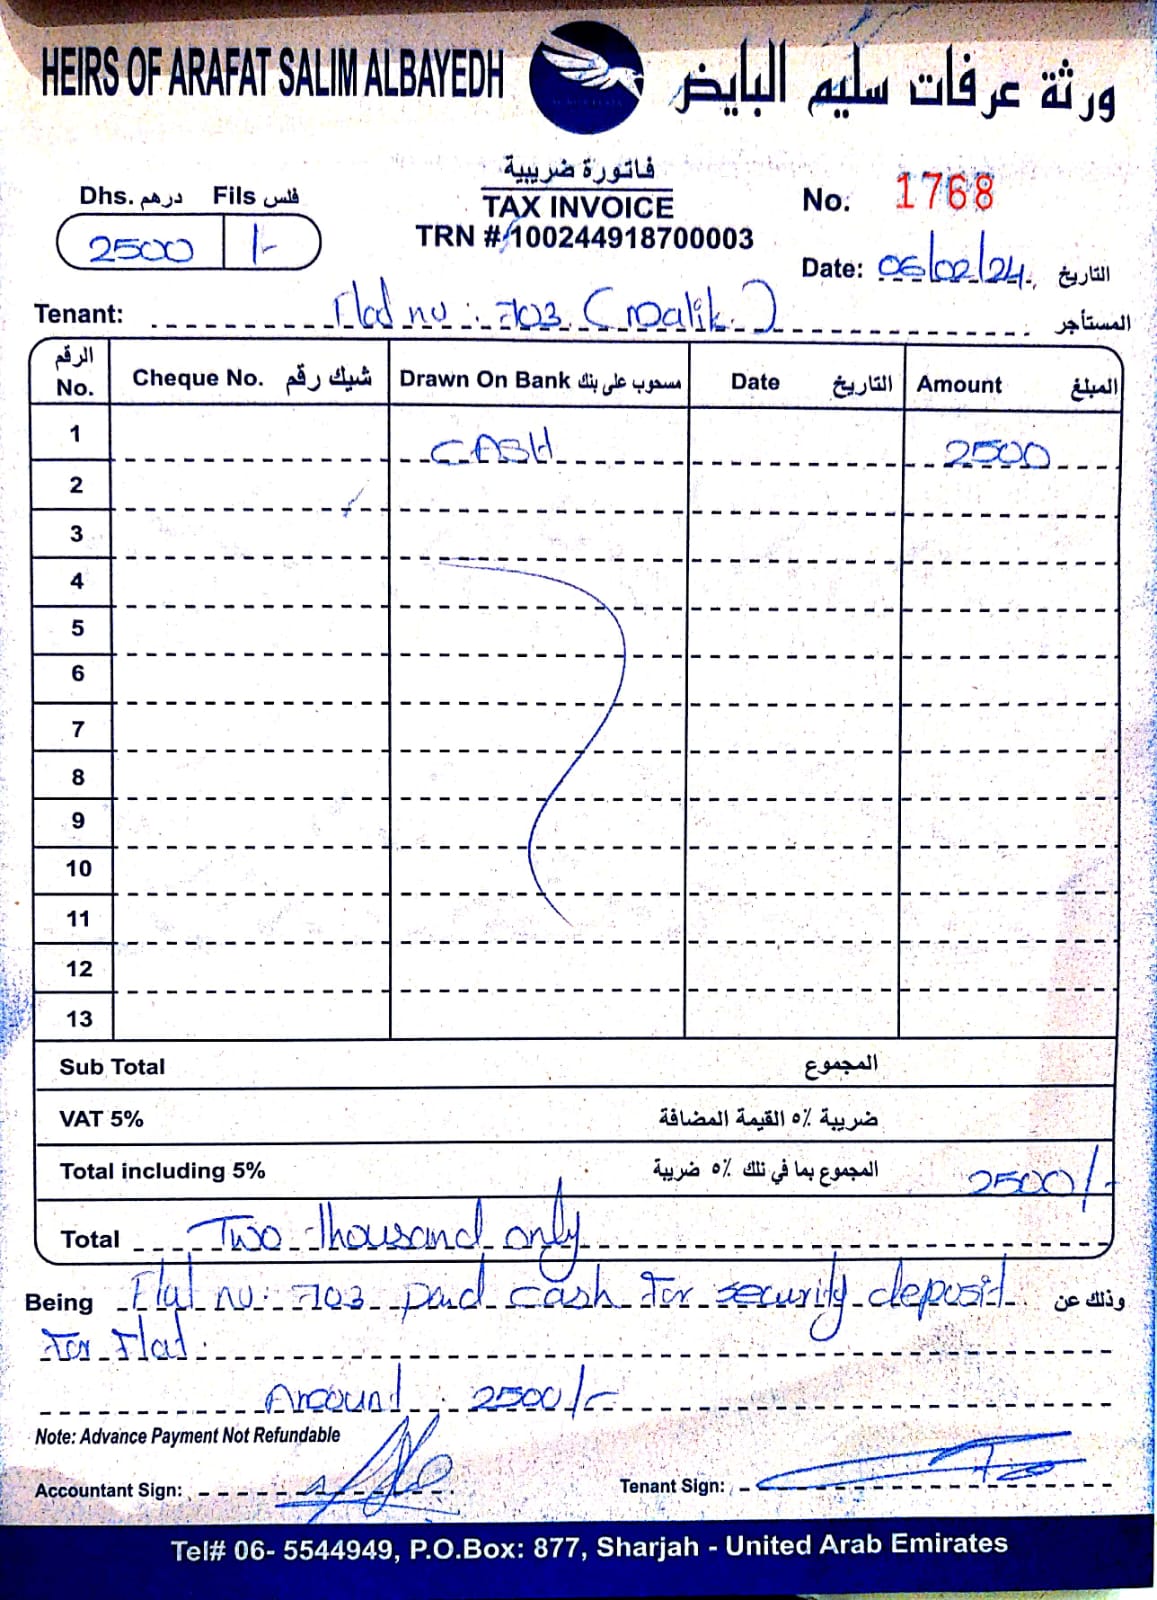 HEIRS OF ARAFAT SALIM ALBAYEDH ورثة عرفات سليم البايض
فاتورة ضريبية
TAX INVOICE
TRN # 100244918700003
Dhs. درهم Fils فلس
2500 /-
No. 1768
Date: 06/02/24 التاريخ
Tenant: Flat no : 703 (Malik) المستأجر
الرقم No. Cheque No. شيك رقم Drawn On Bank مسحوب على بنك Date التاريخ Amount المبلغ
1 CASH 2500
2
3
4
5
6
7
8
9
10
11
12
13
Sub Total المجموع
VAT 5% ضريبة ٥٪ القيمة المضافة
Total including 5% المجموع بما في تلك ٥٪ ضريبة 2500/-
Total Two thousand only
Being Flat no: 703 paid cash for security deposit وذلك عن
for Flat.
Amount : 2500/-
Note: Advance Payment Not Refundable
Accountant Sign: Tenant Sign:
Tel# 06- 5544949, P.O.Box: 877, Sharjah - United Arab Emirates